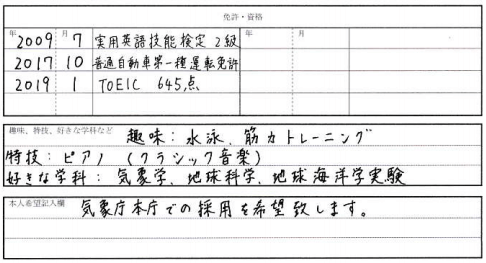 免許・資格
年 月 年 月
2009 7 実用英語技能検定 2級
2017 10 普通自動車第一種運転免許
2019 1 TOEIC 645点
趣味、特技、好きな学科など
趣味：水泳、筋力トレーニング
特技：ピアノ (クラシック音楽)
好きな学科：気象学、地球科学、地球海洋学実験
本人希望記入欄
気象庁本庁での採用を希望致します。